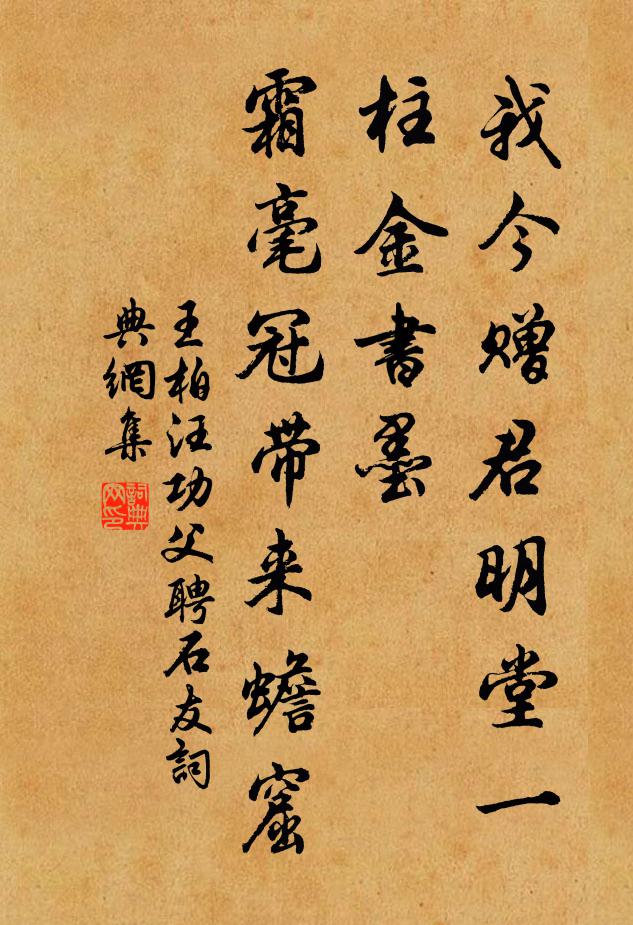 我今赠君明堂一
柱金書墨
霜毫冠带来蟾窟
王柏汪功父聘石友詞
典網集
詞典網印